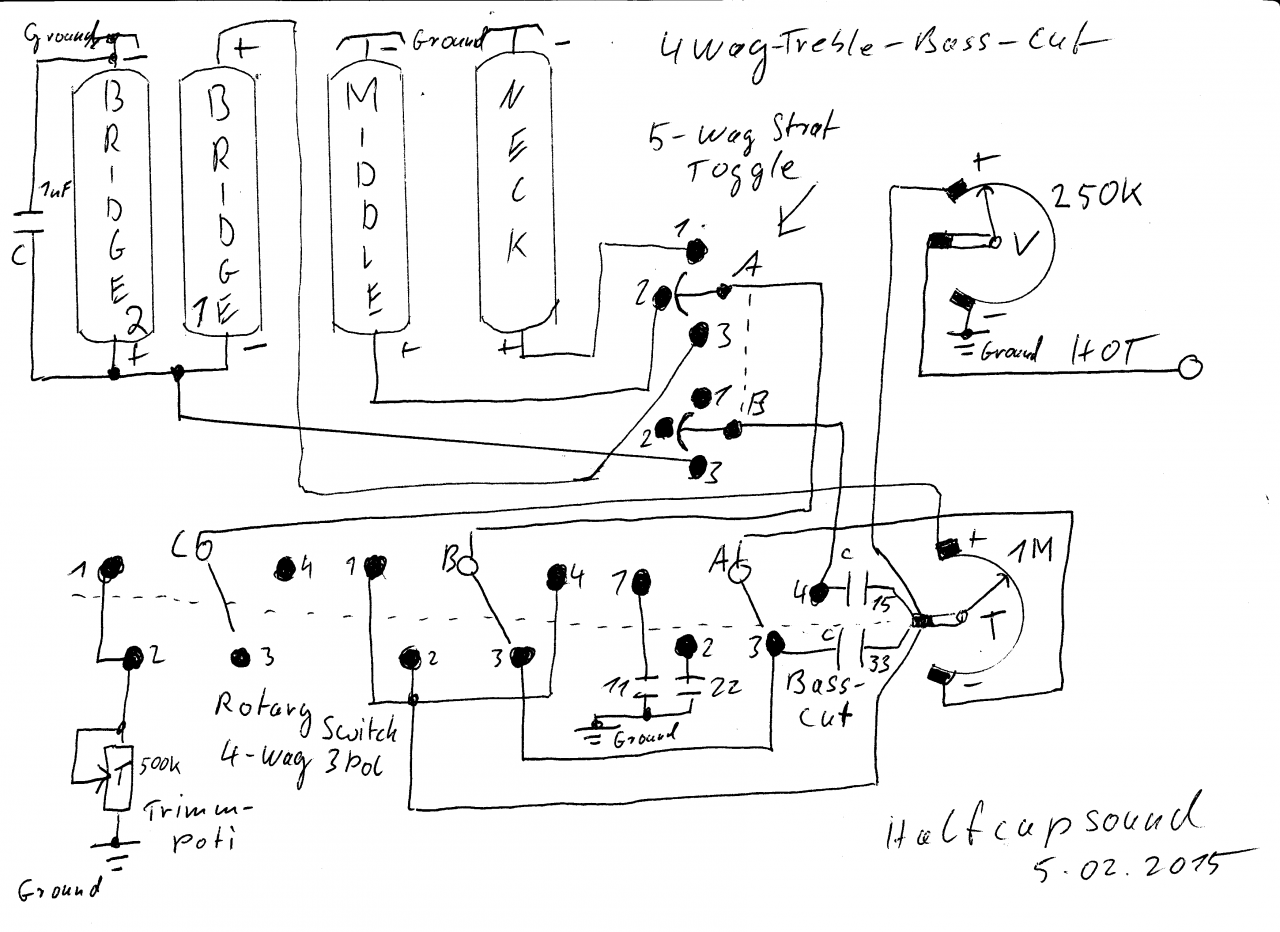 Ground
-
+
-
Ground
-
4Way-Treble-Bass-Cut
BRIDGE
2
BRIDGE
1
MIDDLE
NECK
5-Way Strat
Toggle
1nF
C
+
-
+
+
1
2
3
A
1
2
3
B
+
250K
V
-
Ground
HOT
1
C
4
1
B
4
1
A
4
C
15
+
1M
T
-
2
3
2
3
2
3
C
33
11
22
Bass-
Cut
Ground
Rotary Switch
4-Way 3Pol
T
500K
Trimm-
poti
Ground
Halfcapsound
5.02.2015